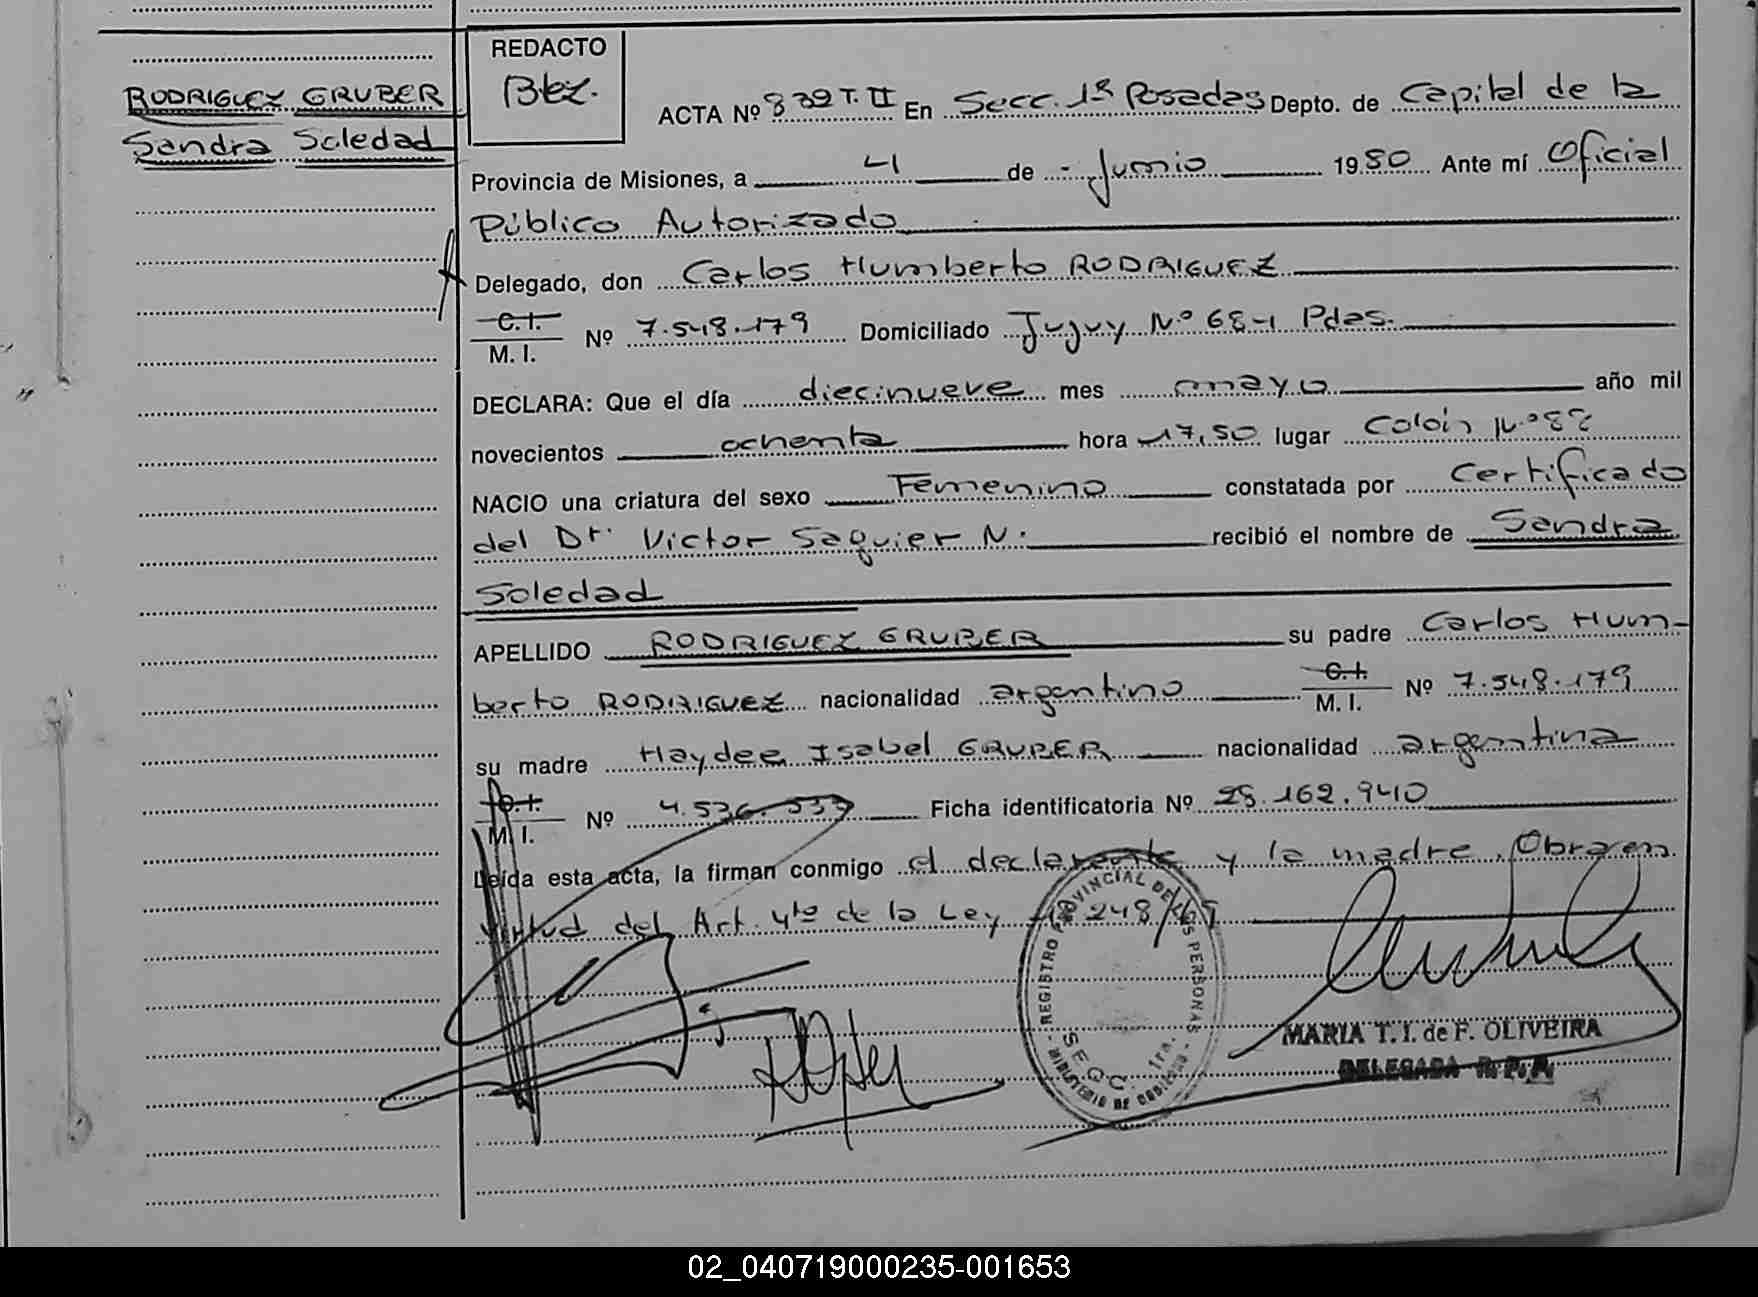 RODRIGUEZ GRUBER
Sandra Soledad
REDACTO
Bez.
ACTA Nº 839 T. II En Secc. 1ª Posadas Depto. de Capital de la
Provincia de Misiones, a 4 de Junio 1980 Ante mí Oficial
Público Autorizado
Delegado, don Carlos Humberto RODRIGUEZ
C.I.
M. I. Nº 7.548.179 Domiciliado Jujuy Nº 681 Pdas.
DECLARA: Que el día diecinueve mes mayo año mil
novecientos ochenta hora 17,50 lugar Colón Nº 82
NACIO una criatura del sexo Femenino constatada por Certificado
del Dr. Victor Saguier N. recibió el nombre de Sandra
Soledad
APELLIDO RODRIGUEZ GRUBER su padre Carlos Hum-
berto RODRIGUEZ nacionalidad argentino C.I. M. I. Nº 7.548.179
su madre Haydee Isabel GRUBER nacionalidad argentina
C.I.
M. I. Nº 4.536.333 Ficha identificatoria Nº 28.162.940
Leída esta acta, la firman conmigo el declarante y la madre. Obra en
virtud del Art. 4to de la Ley 18.248/69
REGISTRO PROVINCIAL DE LAS PERSONAS
SECC. 1ra.
MINISTERIO DE GOBIERNO
MARIA T. I. de F. OLIVEIRA
DELEGADA R. P. P.
02_040719000235-001653